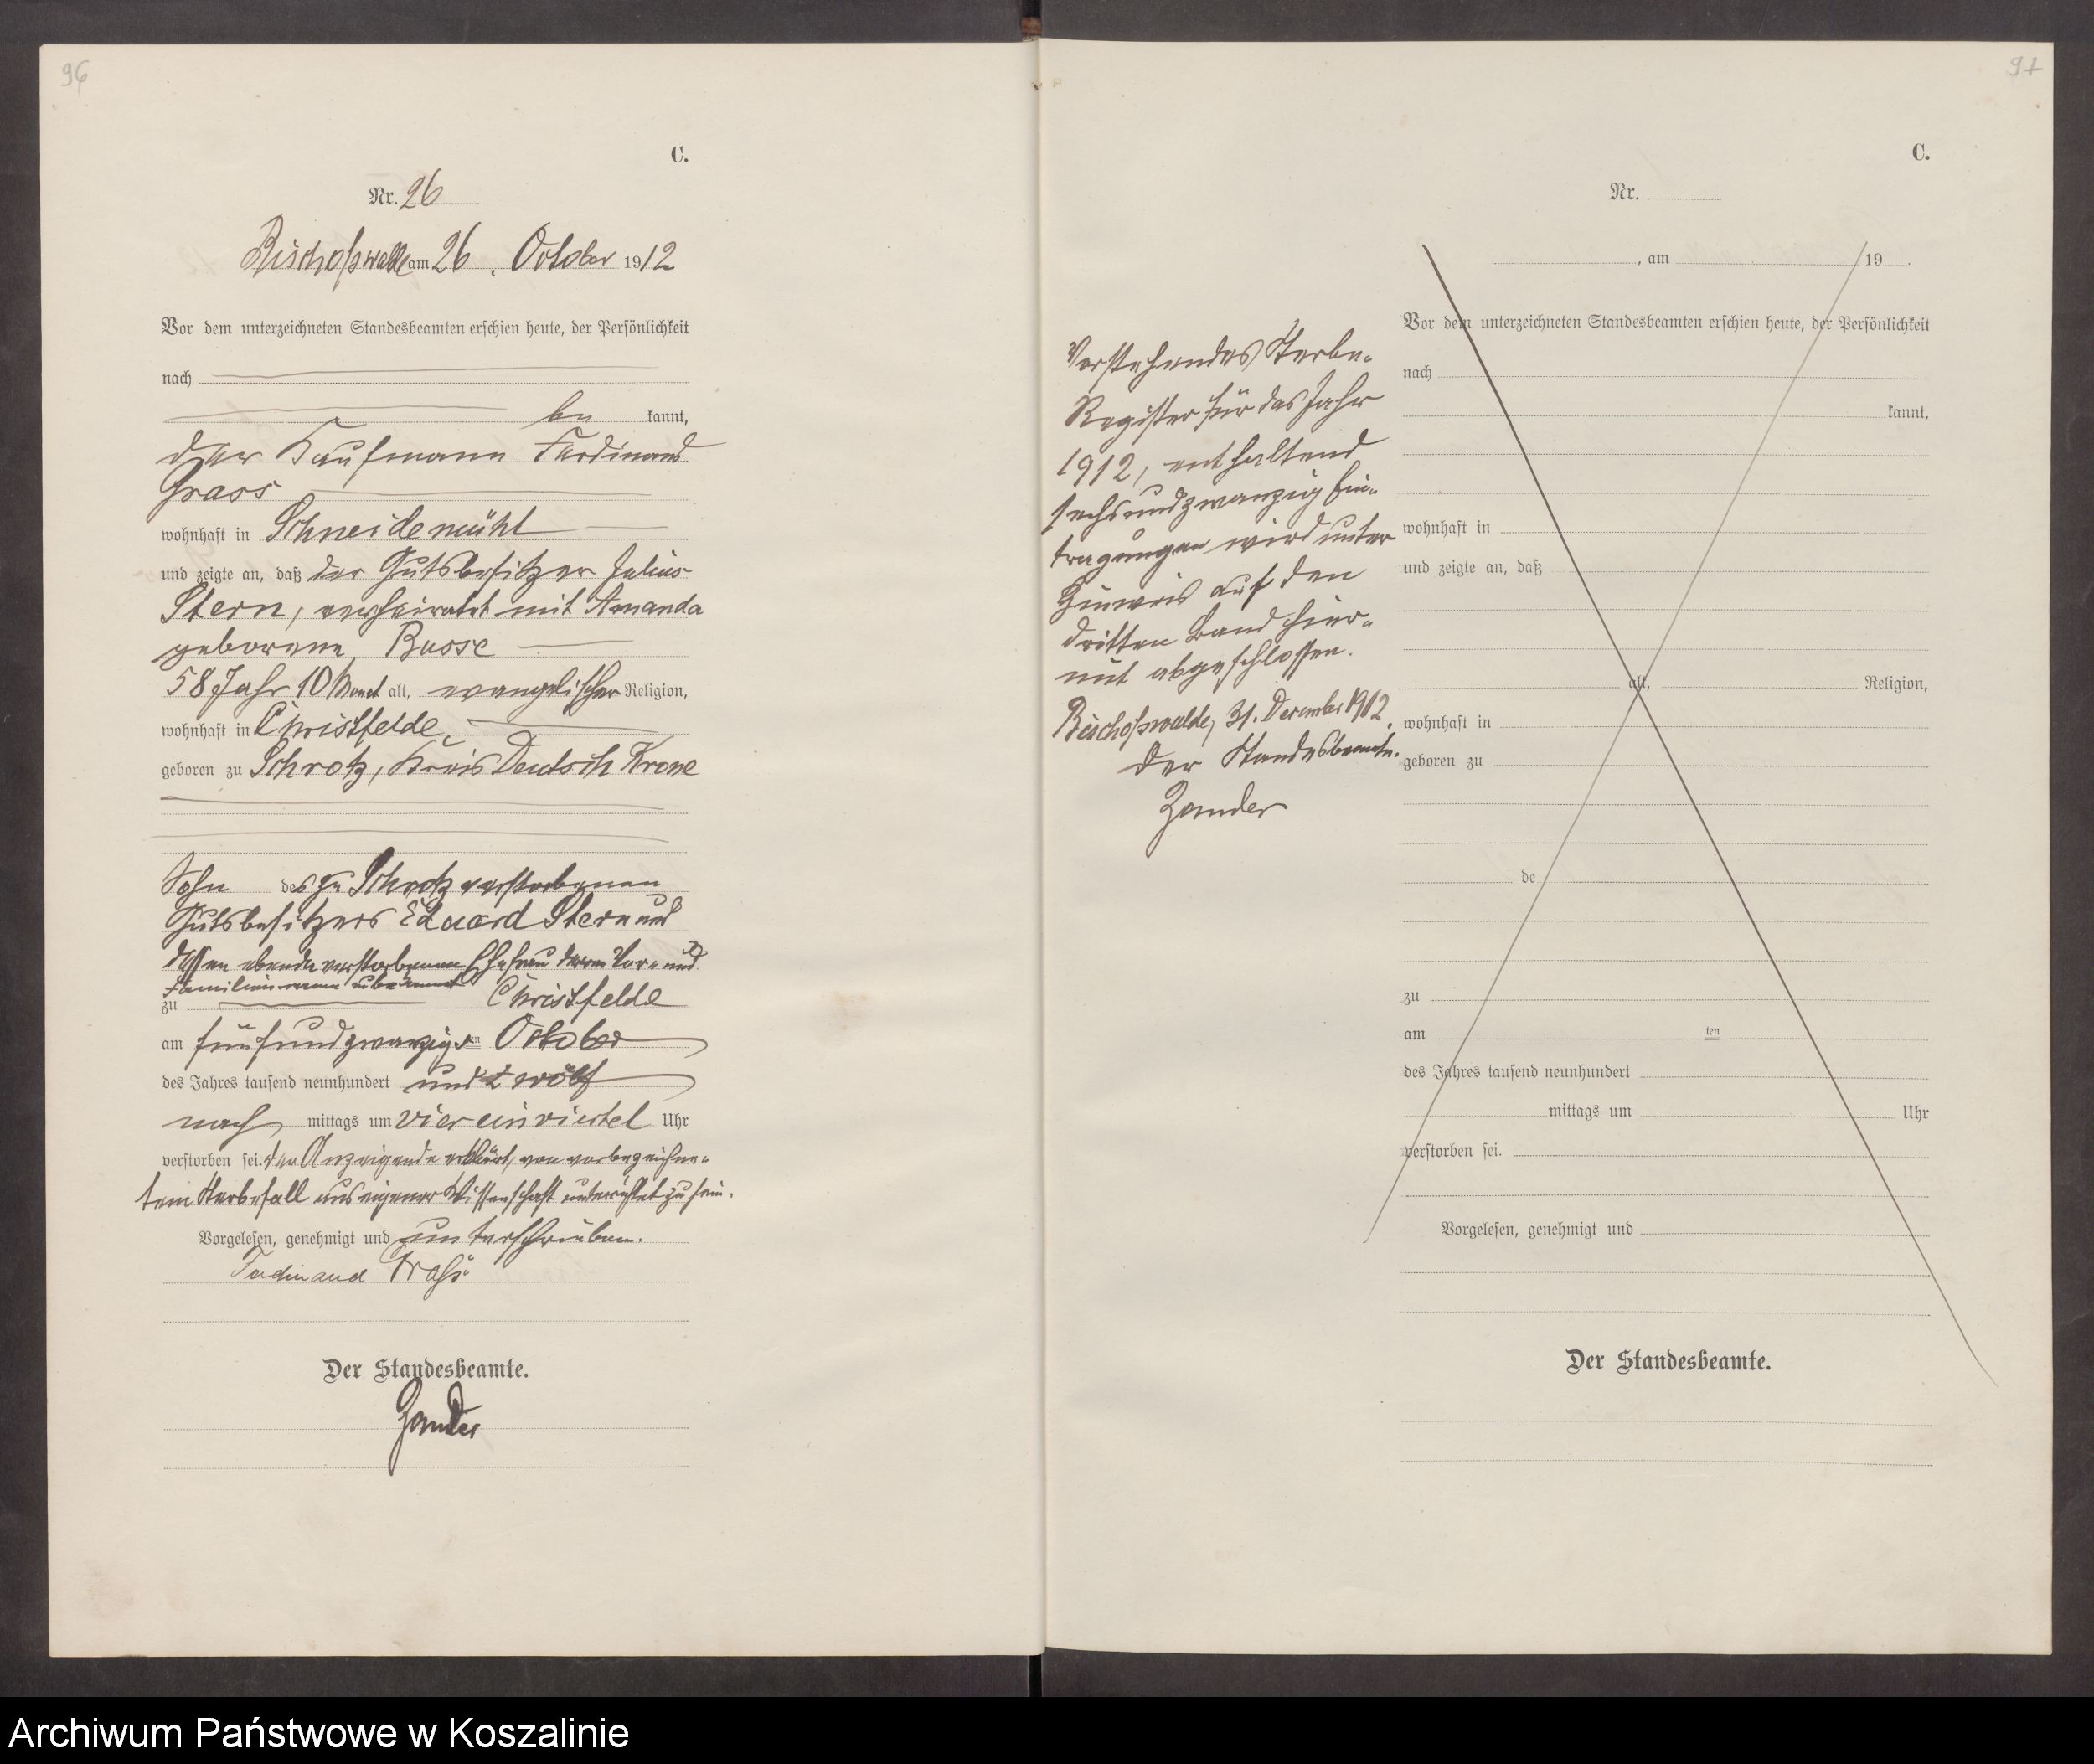 96
C.
Nr. 26
Bischofswalde am 26. October 1912
Vor dem unterzeichneten Standesbeamten erschien heute, der Persönlichkeit
nach
be kannt,
der Kaufmann Ferdinand
Grass
wohnhaft in Schneidemühl
und zeigte an, daß der Gutsbesitzer Julius
Stern, verheiratet mit Amanda
geborene Busse
58 Jahr 10 Monat alt, evangelischer Religion,
wohnhaft in Christfelde,
geboren zu Schrotz, Kreis Deutsch Krone
Sohn des zu Schrotz verstorbenen
Gutsbesitzers Eduard Stern und
dessen ebenda verstorbenen Ehefrau deren Vor- und
Familienname unbekannt
zu Christfelde
am fünfundzwanzigsten October
des Jahres tausend neunhundert und zwölf
nach mittags um viereinviertel Uhr
verstorben sei. Der Anzeigende erklärt, von vorbezeichne-
tem Sterbefall aus eigener Wissenschaft unterrichtet zu sein.
Vorgelesen, genehmigt und unterschrieben.
Ferdinand Graß
Der Standesbeamte.
Zander
97
C.
Nr.
, am 19 .
Vor dem unterzeichneten Standesbeamten erschien heute, der Persönlichkeit
nach
kannt,
wohnhaft in
und zeigte an, daß
alt, Religion,
wohnhaft in
geboren zu
de
zu
am ten
des Jahres tausend neunhundert
mittags um Uhr
verstorben sei.
Vorgelesen, genehmigt und
Der Standesbeamte.
Vorstehendes Sterbe-
Register für das Jahr
1912, enthaltend
sechsundzwanzig Ein-
tragungen wird unter
Hinweis auf den
dritten Band hier-
mit abgeschlossen.
Bischofswalde, 31. December 1912.
Der Standesbeamte.
Zander
Archiwum Państwowe w Koszalinie